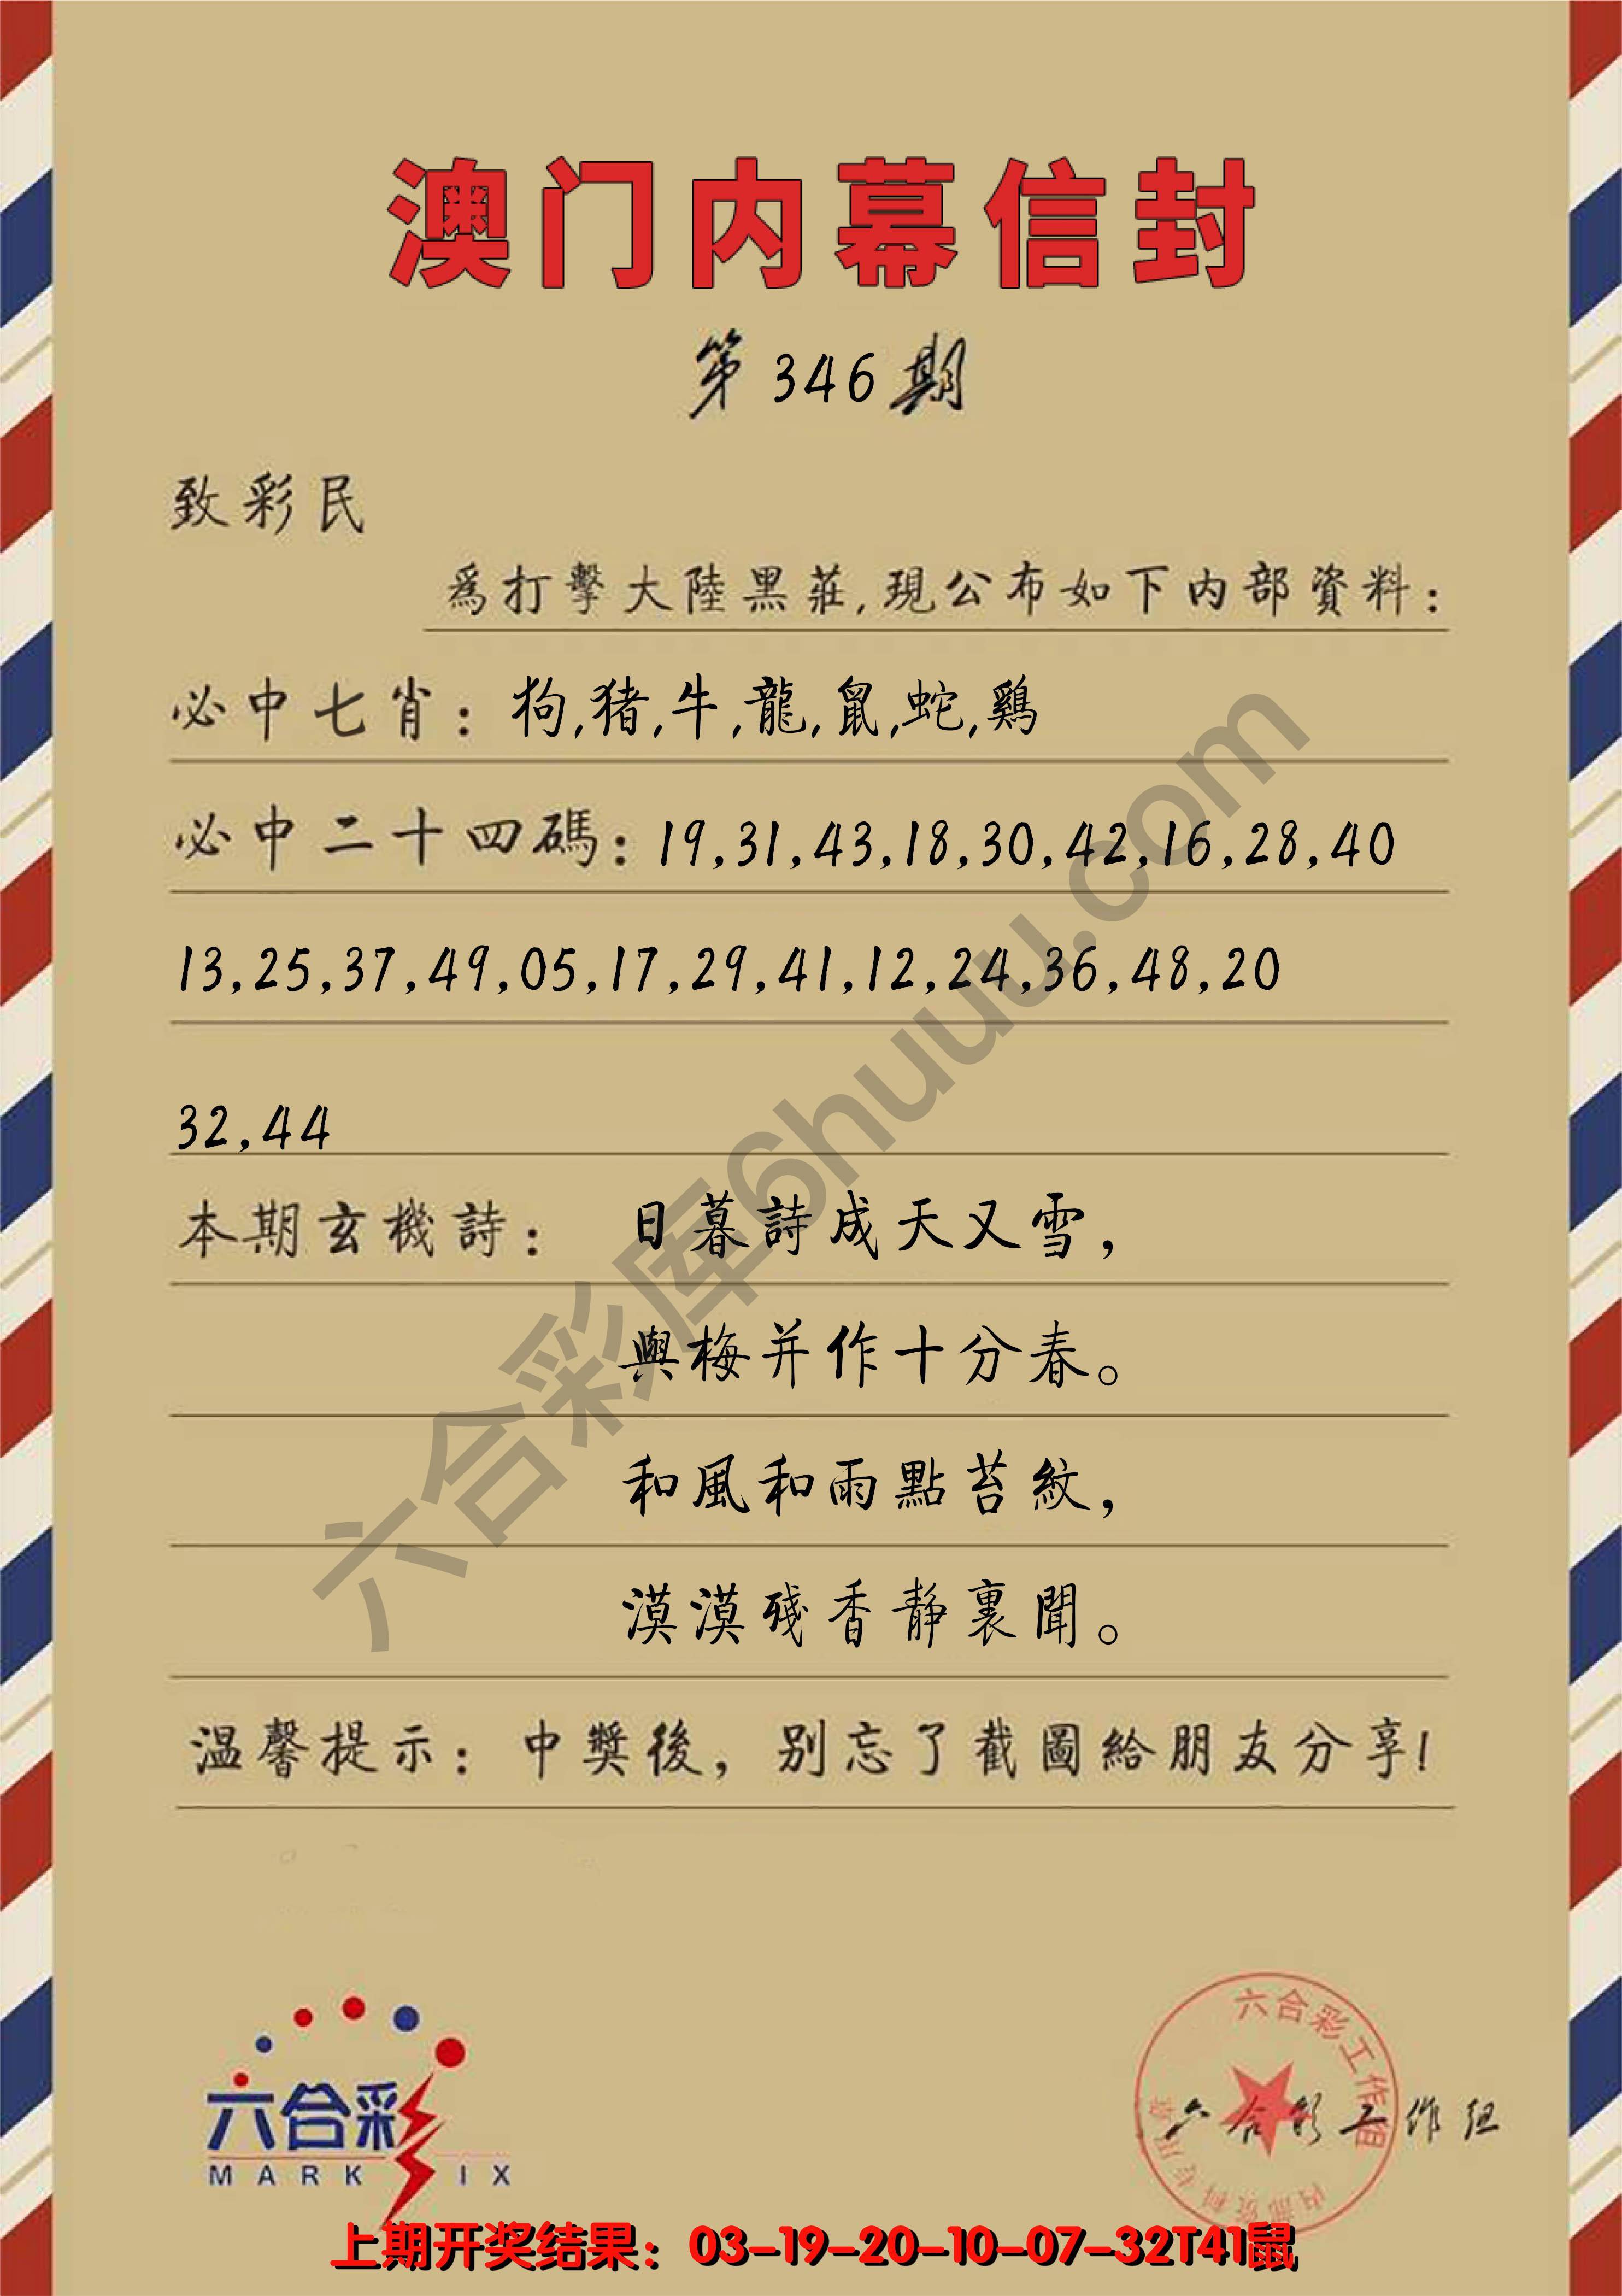 澳门内幕信封
第346期
致彩民
爲打擊大陸黑莊,現公布如下内部資料:
必中七肖:狗,猪,牛,龍,鼠,蛇,鷄
必中二十四碼:19,31,43,18,30,42,16,28,40
13,25,37,49,05,17,29,41,12,24,36,48,20
32,44
本期玄機詩: 日暮詩成天又雪,
與梅并作十分春。
和風和雨點苔紋,
漠漠殘香静裏聞。
温馨提示:中獎後,别忘了截圖給朋友分享!
六合彩库6huuu.com
六合彩
MARK IX
六合彩工作组
六合彩工作组
上期开奖结果:03-19-20-10-07-32T41鼠